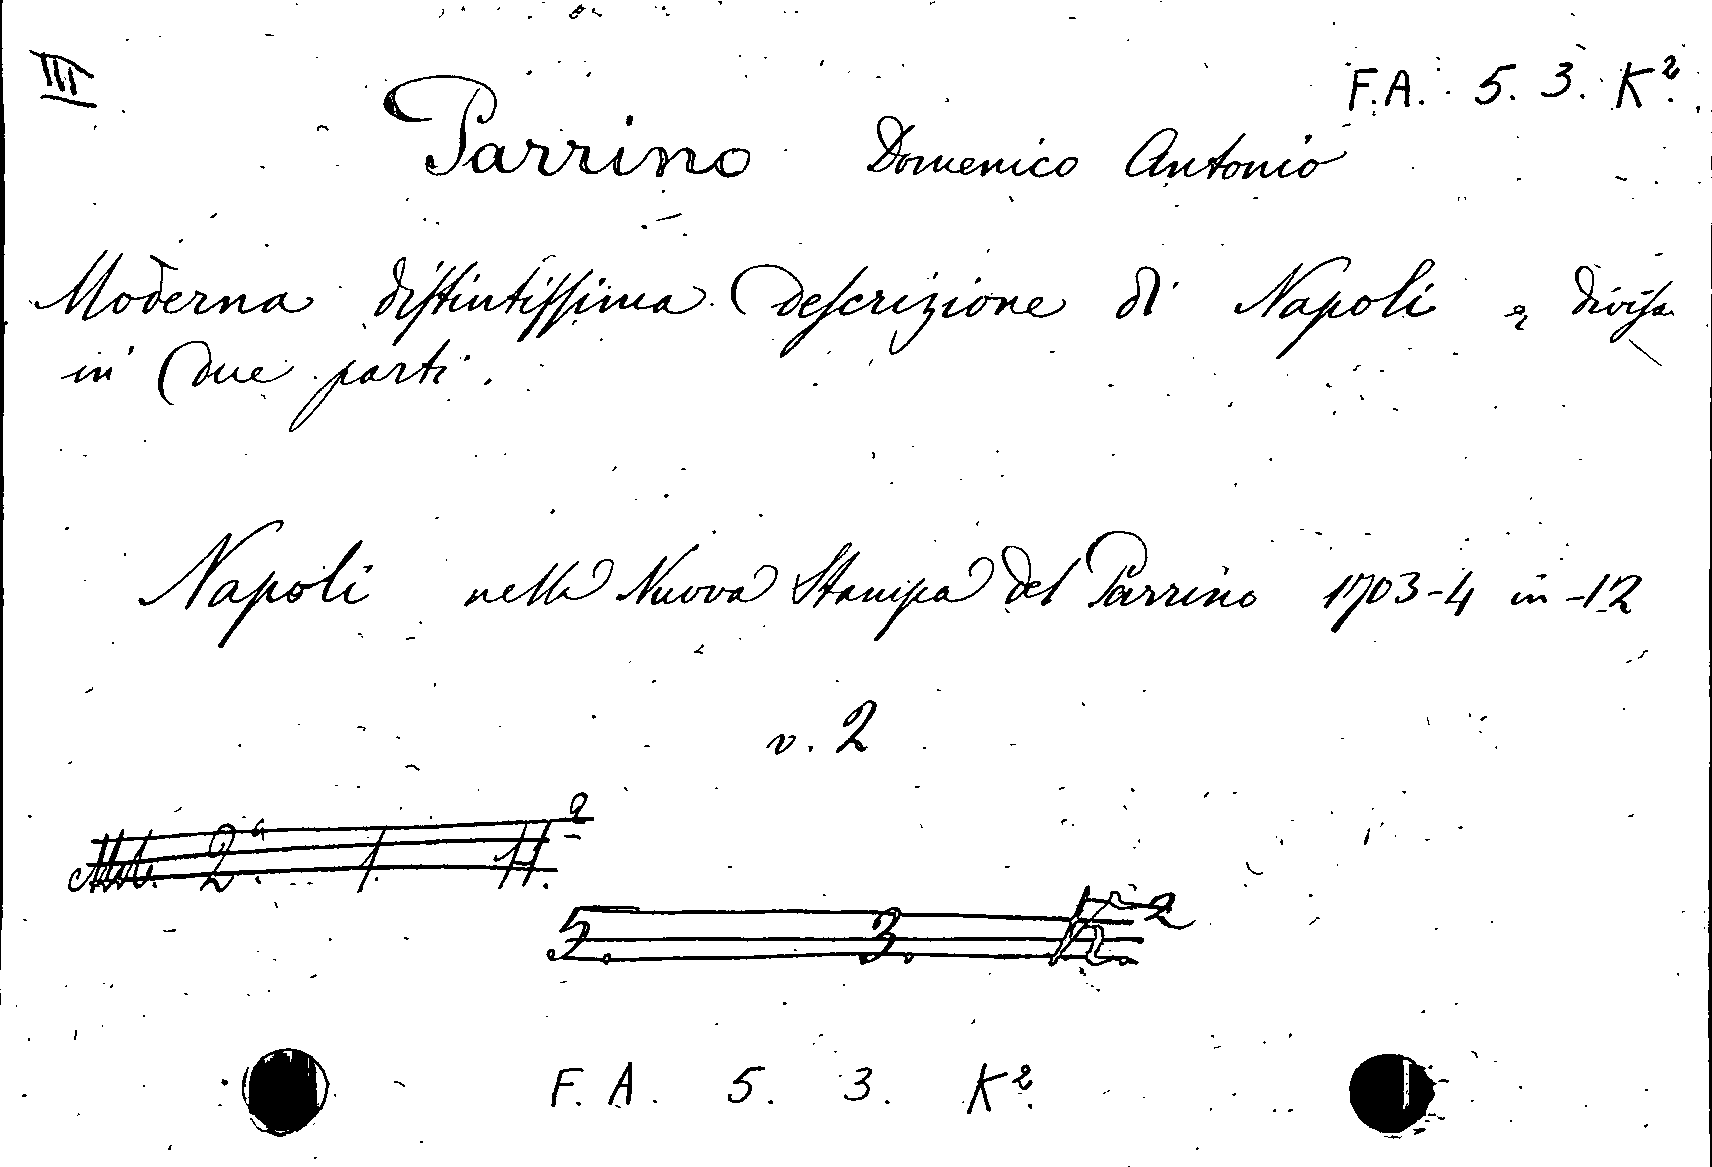 III
F.A. 5. 3. K².
Parrino Domenico Antonio
Moderna distintissima descrizione di Napoli & divisa
in due parti.
Napoli nella Nuova Stampa del Parrino 1703-4 in-12
v. 2
2ª. 1. H.²
5. 3. K.²
F. A. 5. 3. K².